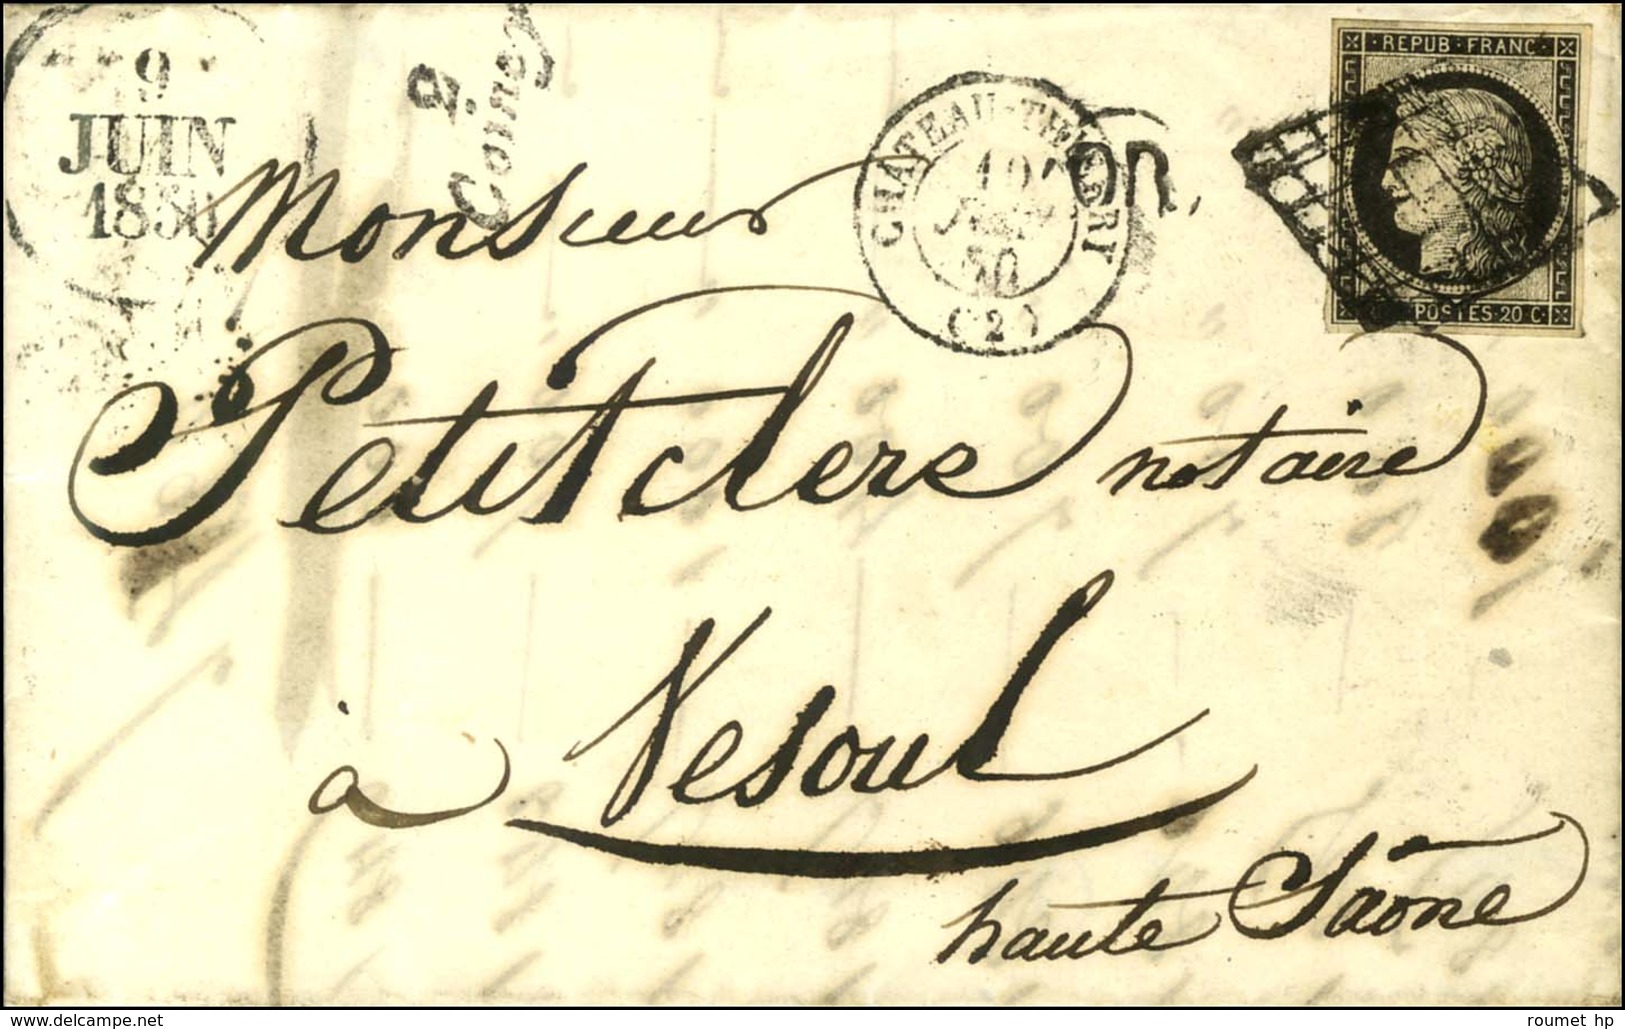 9
JUIN
1850
2
Coincy
CHATEAU-THIERRY
10
JUIN
50
(2)
OR.
REPUB·FRANC
POSTES·20 C·
Monsieur
Petitclerc notaire
à Vesoul
haute Saône
roumet hp